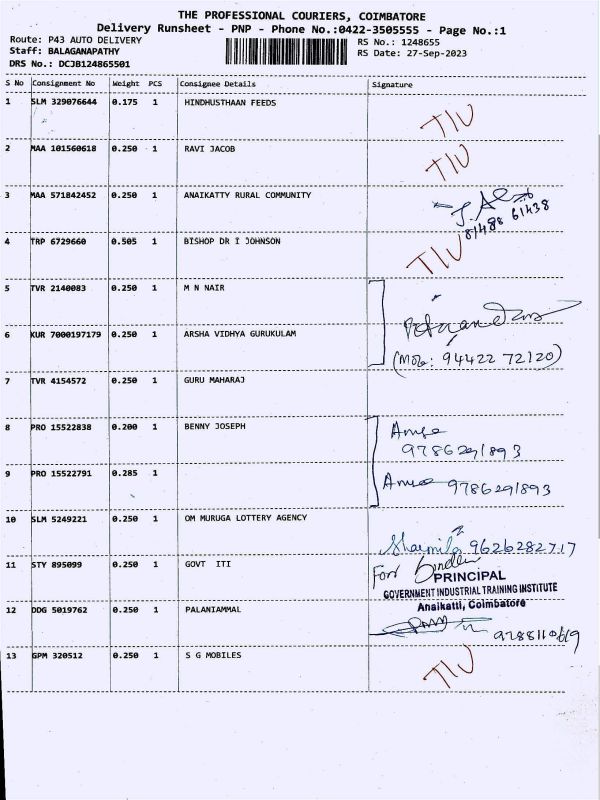 THE PROFESSIONAL COURIERS, COIMBATORE
Delivery Runsheet - PNP - Phone No.:0422-3505555 - Page No.:1
Route: P43 AUTO DELIVERY RS No.: 1248655
Staff: BALAGANAPATHY RS Date: 27-Sep-2023
DRS No.: DCJB124865501
S No Consignment No Weight PCS Consignee Details Signature
1 SLM 329076644 0.175 1 HINDHUSTHAAN FEEDS
2 MAA 101560618 0.250 1 RAVI JACOB
3 MAA 571842452 0.250 1 ANAIKATTY RURAL COMMUNITY
81488 61438
4 TRP 6729660 0.505 1 BISHOP DR I JOHNSON
5 TVR 2140083 0.250 1 M N NAIR
6 KUR 7000197179 0.250 1 ARSHA VIDHYA GURUKULAM
(Mob: 94422 72120)
7 TVR 4154572 0.250 1 GURU MAHARAJ
8 PRO 15522838 0.200 1 BENNY JOSEPH
9786291893
9 PRO 15522791 0.285 1
9786291893
10 SLM 5249221 0.250 1 OM MURUGA LOTTERY AGENCY
Sharmila 9626282717
11 STY 895099 0.250 1 GOVT ITI
For
PRINCIPAL
GOVERNMENT INDUSTRIAL TRAINING INSTITUTE
Anaikatti, Coimbatore
12 DDG 5019762 0.250 1 PALANIAMMAL
13 GPM 320512 0.250 1 S G MOBILES